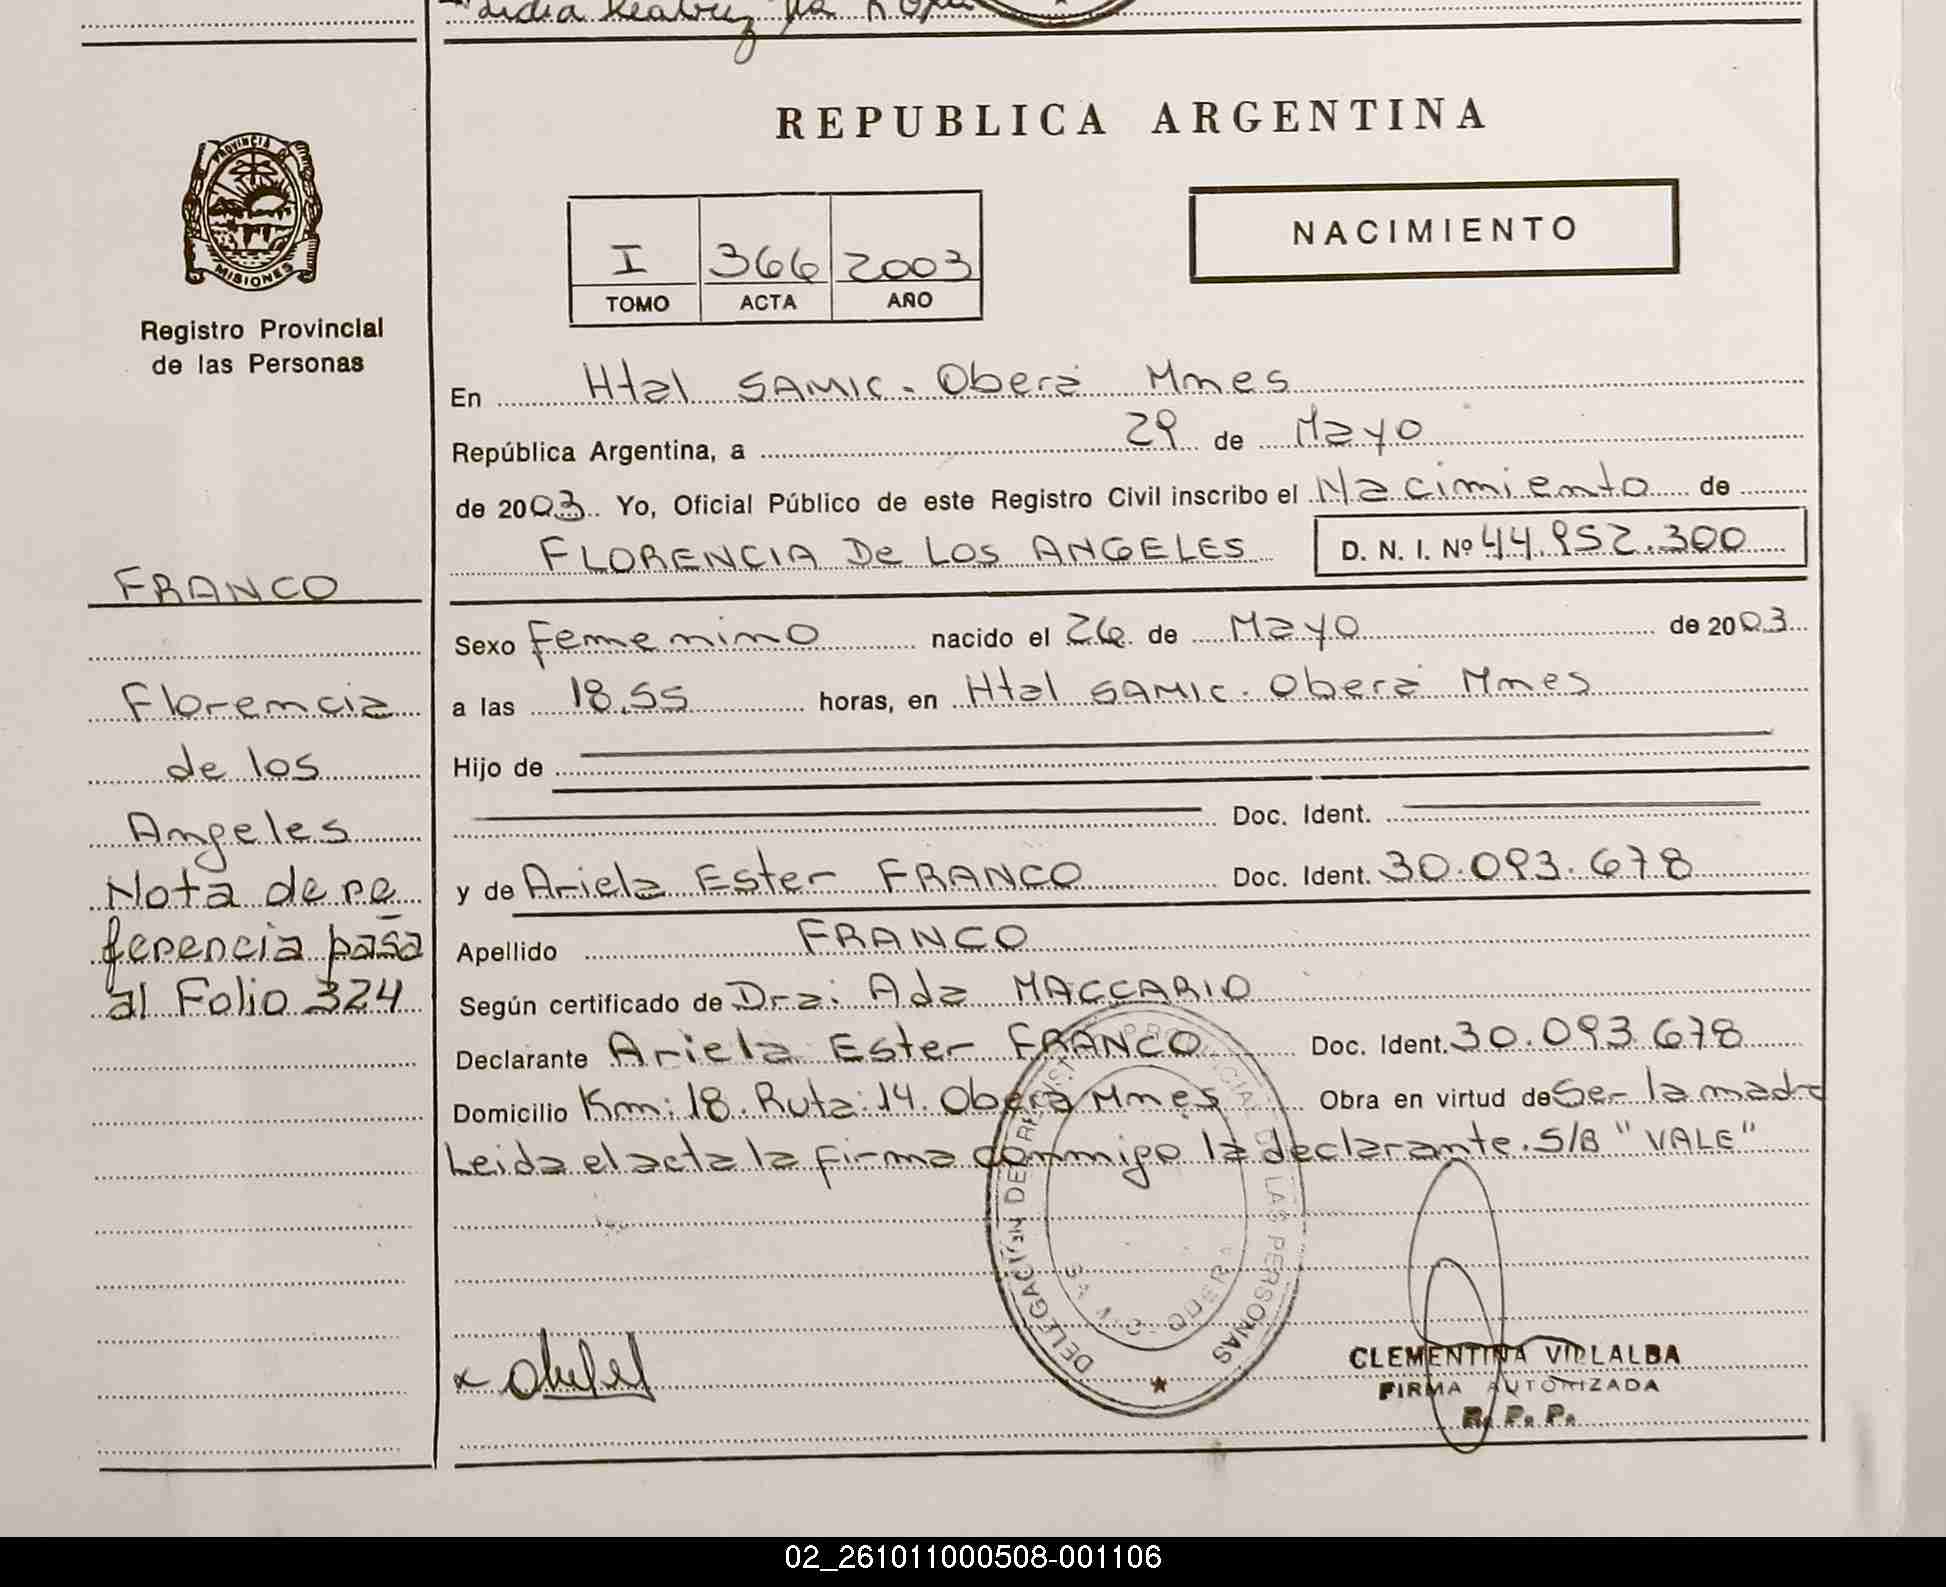 PROVINCIA DE
MISIONES
Registro Provincial
de las Personas
FRANCO
Florencia
de los
Angeles
Nota de re
ferencia pasa
al Folio 324
REPUBLICA ARGENTINA
I 366 2003
TOMO ACTA AÑO
NACIMIENTO
En Htal SAMIC. Oberá Mnes
República Argentina, a 29 de Mayo
de 2003. Yo, Oficial Público de este Registro Civil inscribo el Nacimiento de
FLORENCIA De Los ANGELES D. N. I. Nº 44.952.300
Sexo Femenino nacido el 26 de Mayo de 2003
a las 18.55 horas, en Htal SAMIC. Oberá Mnes
Hijo de
Doc. Ident.
y de Ariela Ester FRANCO Doc. Ident. 30.093.678
Apellido FRANCO
Según certificado de Dra: Ada MACCARIO
Declarante Ariela Ester FRANCO Doc. Ident. 30.093.678
Domicilio Km: 18. Ruta: 14. Oberá Mnes Obra en virtud de Ser la madre
Leida el acta la firma conmigo la declarante. S/B "VALE"
DELEGACIÓN DEL REGISTRO PROVINCIAL DE LAS PERSONAS
CLEMENTINA VILLALBA
FIRMA AUTORIZADA
R. P. P.
02_261011000508-001106